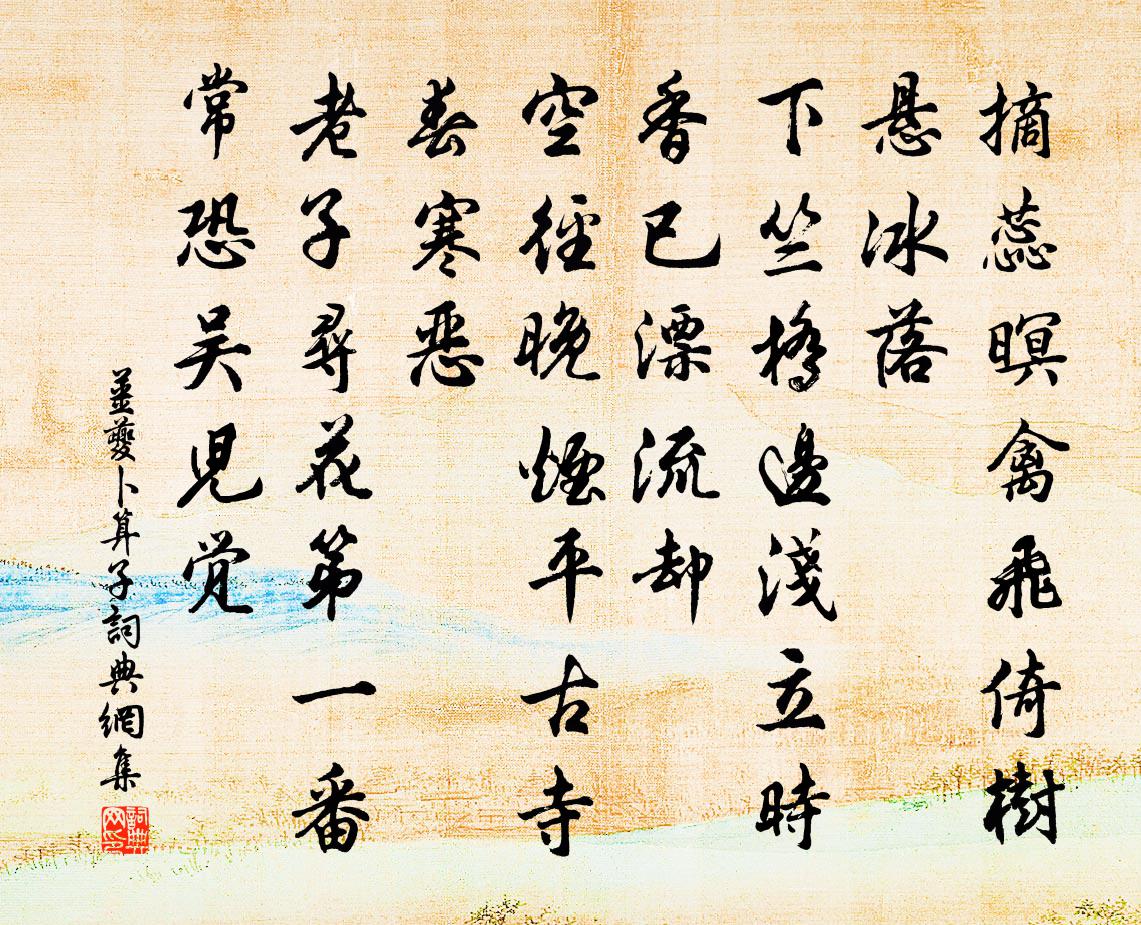 摘蕊暝禽飛倚樹
懸冰落
下竺橋邊淺立時
香已漂流却
空徑晚煙平古寺
春寒惡
老子尋花第一番
常恐吴兒覺
姜夔卜算子詞典網集
詞典網印